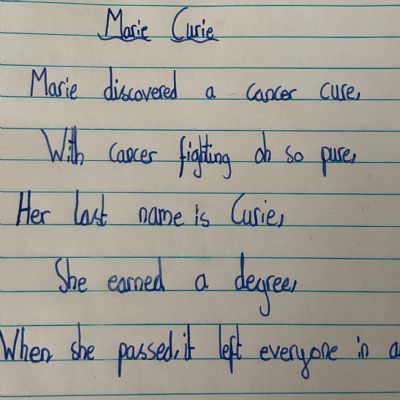 Marie Curie
Marie discovered a cancer cure,
With cancer fighting oh so pure,
Her last name is Curie,
She earned a degree,
When she passed, it left everyone in a